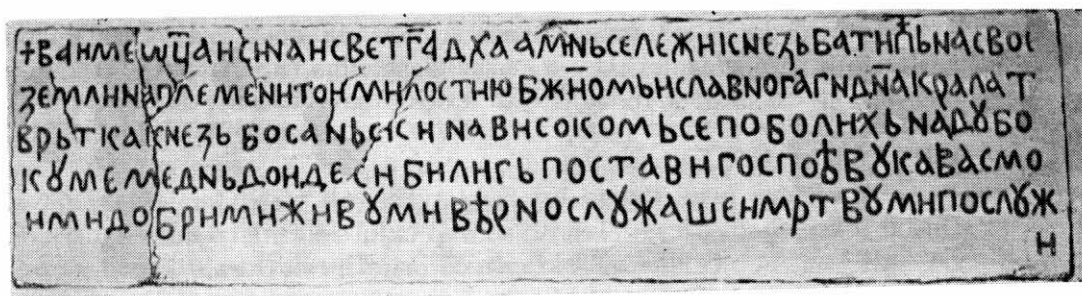 +ВАИМЕѠЦ҃АИСИНАИСВЕТГ҃АДХААМ҃НЬСЕЛЕЖИКНЕЗЬБАТИЋЬНАСВОЄ
ЗЕМЛИНАПЛЕМЕНИТОИМИЛОСТИЮБЖ҃ИОМЬИСЛАВНОГАГ҃НДН҃АКРАЛАТ
ВРЬТКАКНЕЗЬБОСАНЬСКИНАВИСОКОМЬСЕПОБОЛИХЬНАДꙊБО
КꙊМЕМЕДНЬДОИДЕСИБИЛИГЬПОСТАВИГОСПОꙉВꙊКАВАСМО
ИМИДОБРИМИЖИВꙊМИВꙉРНОСЛꙊЖАШЕИМРТВꙊМИПОСЛꙊЖ
И